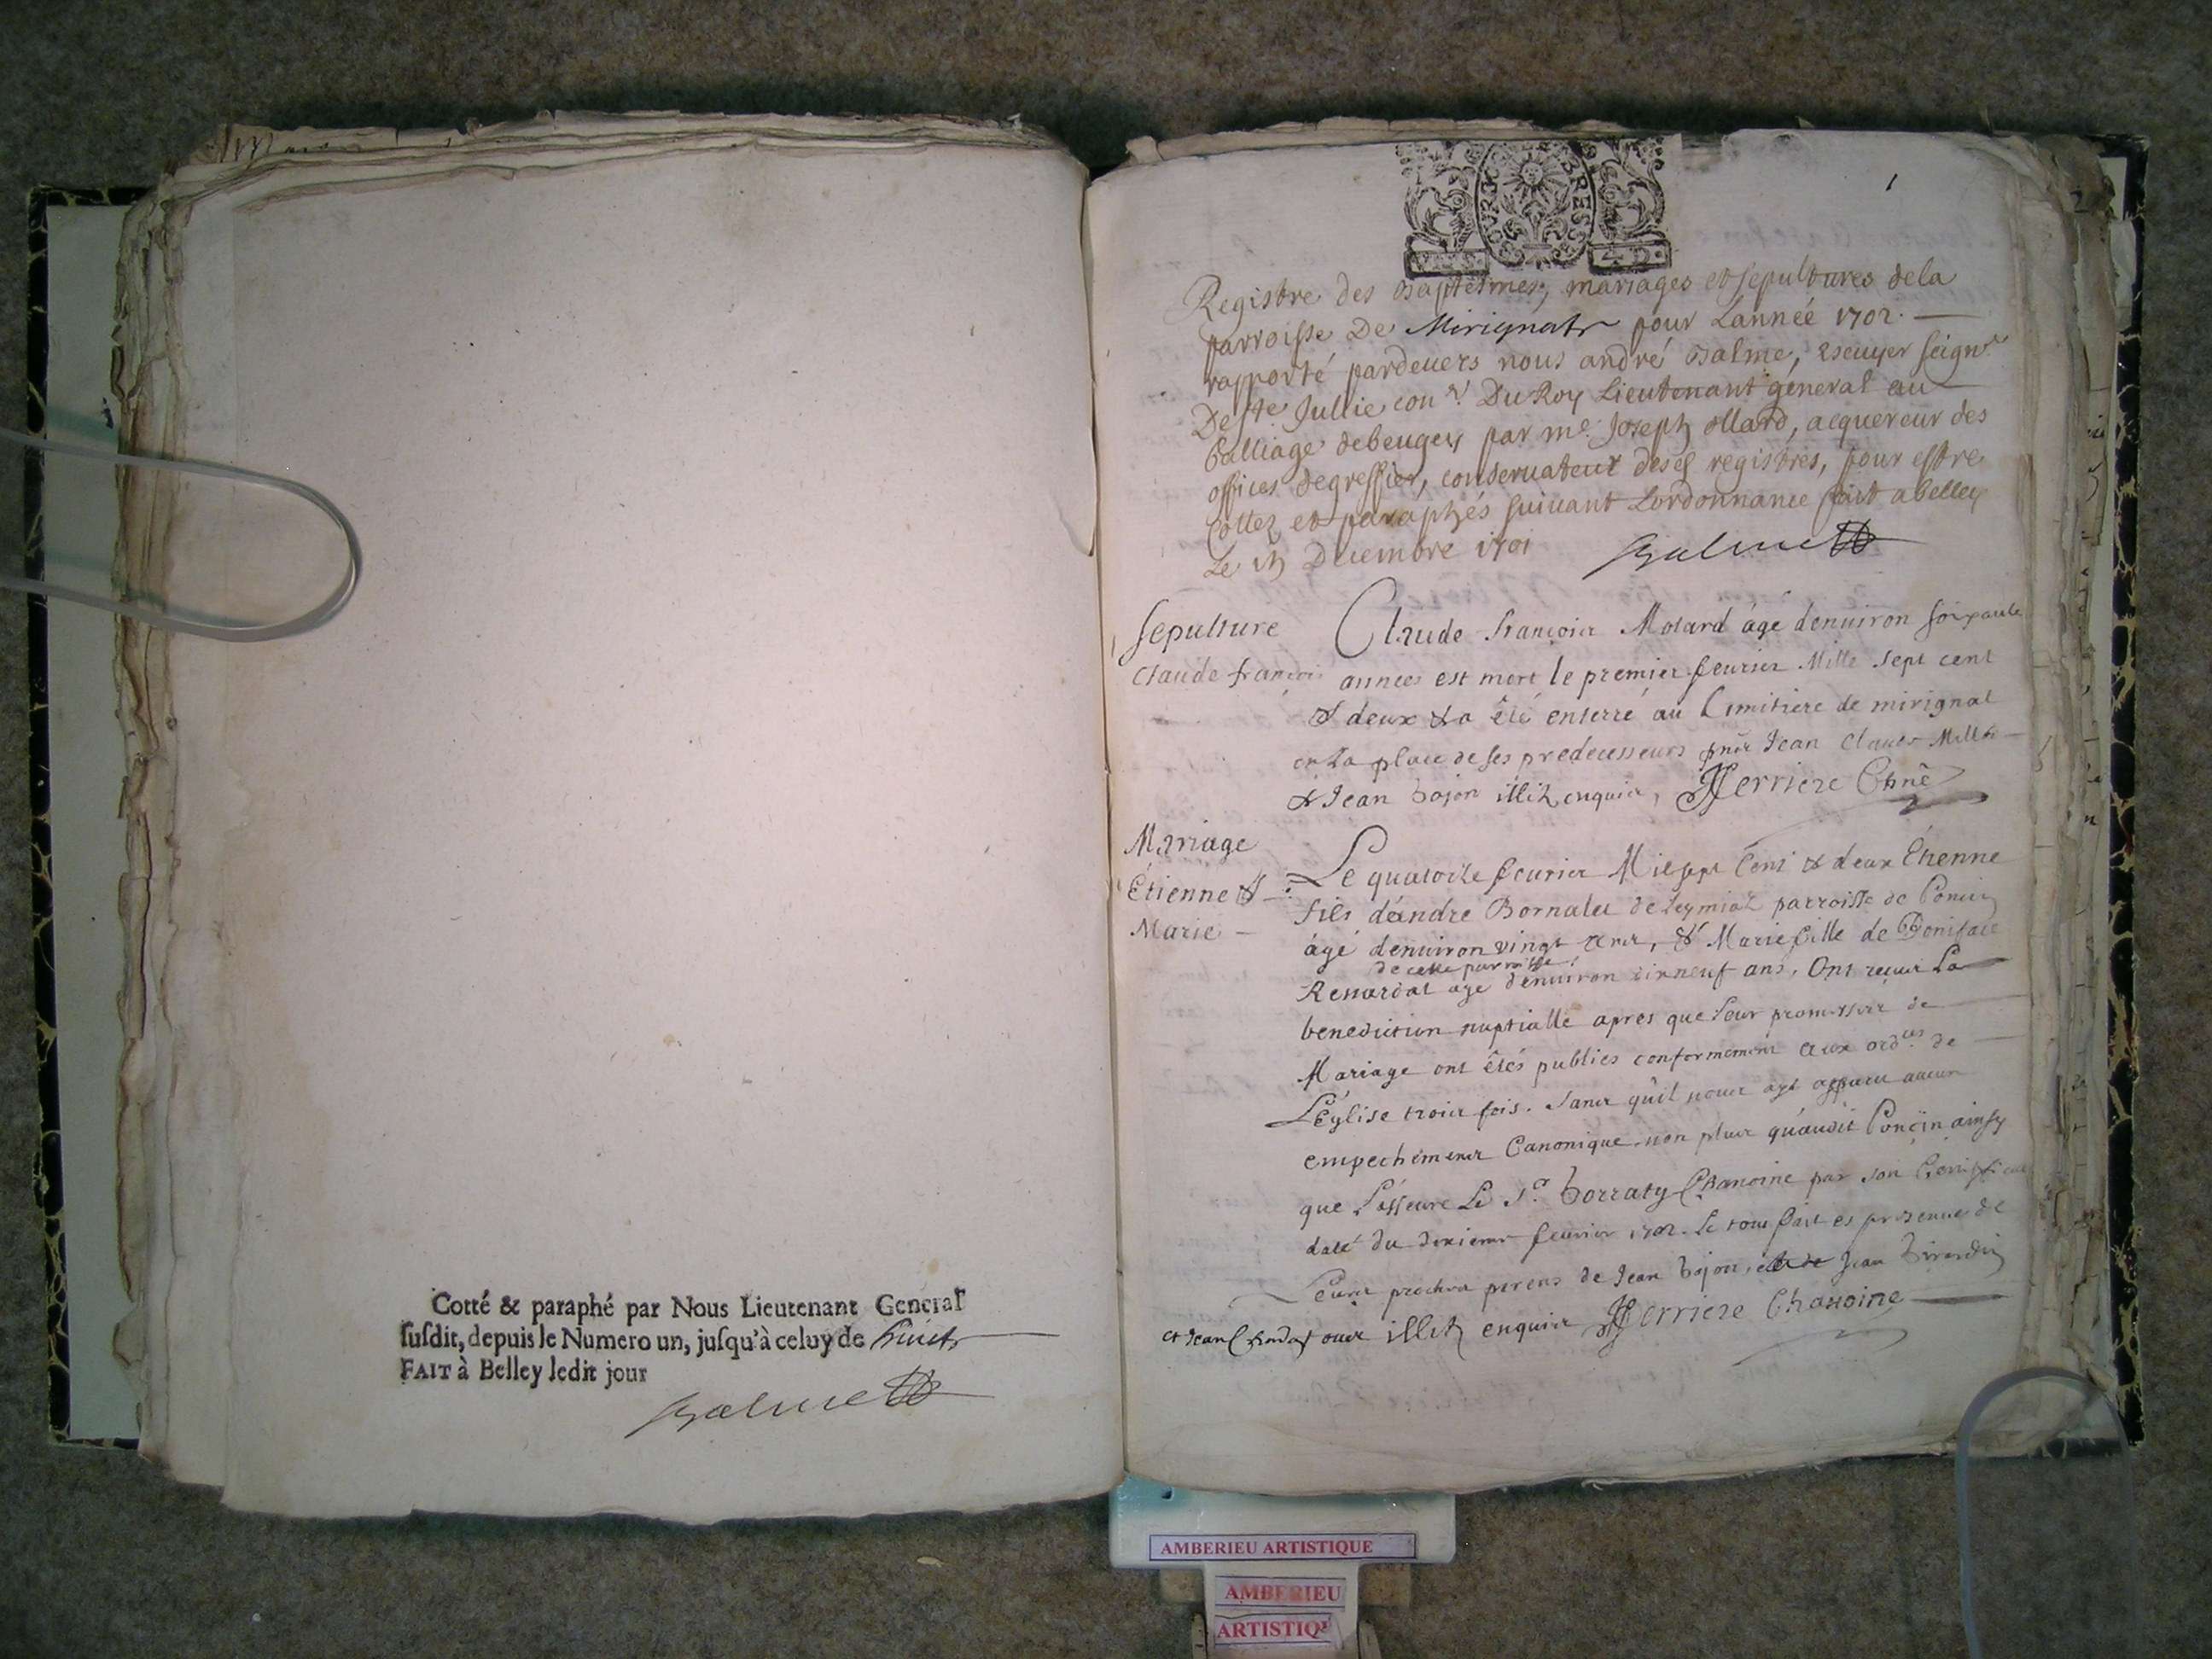 Cotté & paraphé par Nous Lieutenant General
susdit, depuis le Numero un, jusqu'à celuy de huict
FAIT à Belley ledit jour
Balme
1
BOURG EN BRESSE
Registre des Baptesmes, mariages et sepultures de la
parroisse De Mirignat pour Lannée 1702
rapporté pardevers nous andré Balme, Escuyer seignr
De Ste Jullie conr Du Roy Lieutenant general au
balliage de beugey par me Joseph ollard, acquereur des
offices de greffier, conservateur desd registres, pour estre
Cottez et paraphés suivant Lordonnance fait a belley
Le Decembre 1701
Balme
Sepulture
Claude françois
Claude françois Molard âgé denuiron soixante
années est mort le premier feurier Mille sept cent
& deux & a êté enterré au Cimitiere de mirignat
en La place de ses predecesseurs Jean Claude Millet
& Jean bojon illit enquis, Ferriere Chne
Mariage
Étienne &
Marie
Le quatorze feurier Mil sept Cent & deux Étienne
fils dándré Bornalet de Leymiat parroisse de Poncin
âgé denuiron vingt ans, & Marie fille de Boniface
de cette parroisse
Renardat age denuiron dixneuf ans, Ont receu La
benediction nuptialle apres que Leur promesses de
Mariage ont êtés publiés conformement aux ordces de
LÉglise trois fois. Sans qu'il nous aye apparu aucun
empechement Canonique non plus quáudit Poncin ainsy
que Lásseure Le Sr borraty Chanoine par son Certificat
daté du feurier 1702. Le tout fait es presence de
Leurs prochers parens de Jean bojon, et de Jean Girardin
et Jean ous illit enquis Ferriere Chanoine
AMBERIEU ARTISTIQUE
AMBERIEU
ARTISTIQU